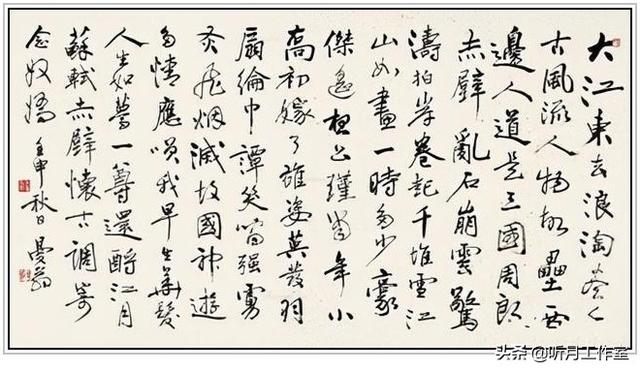 大江東去浪淘盡千
古風流人物故壘西
邊人道是三國周郎
赤壁亂石崩雲驚
濤拍岸卷起千堆雪江
山如畫一時多少豪
傑遙想公瑾當年小
喬初嫁了雄姿英發羽
扇綸巾譚笑間强虜
灰飛烟滅故國神遊
多情應咲我早生華髮
人生如夢一尊還酹江月
蘇軾赤壁懷古調寄
念奴嬌 壬申秋日 曼翁
头条 @听月工作室